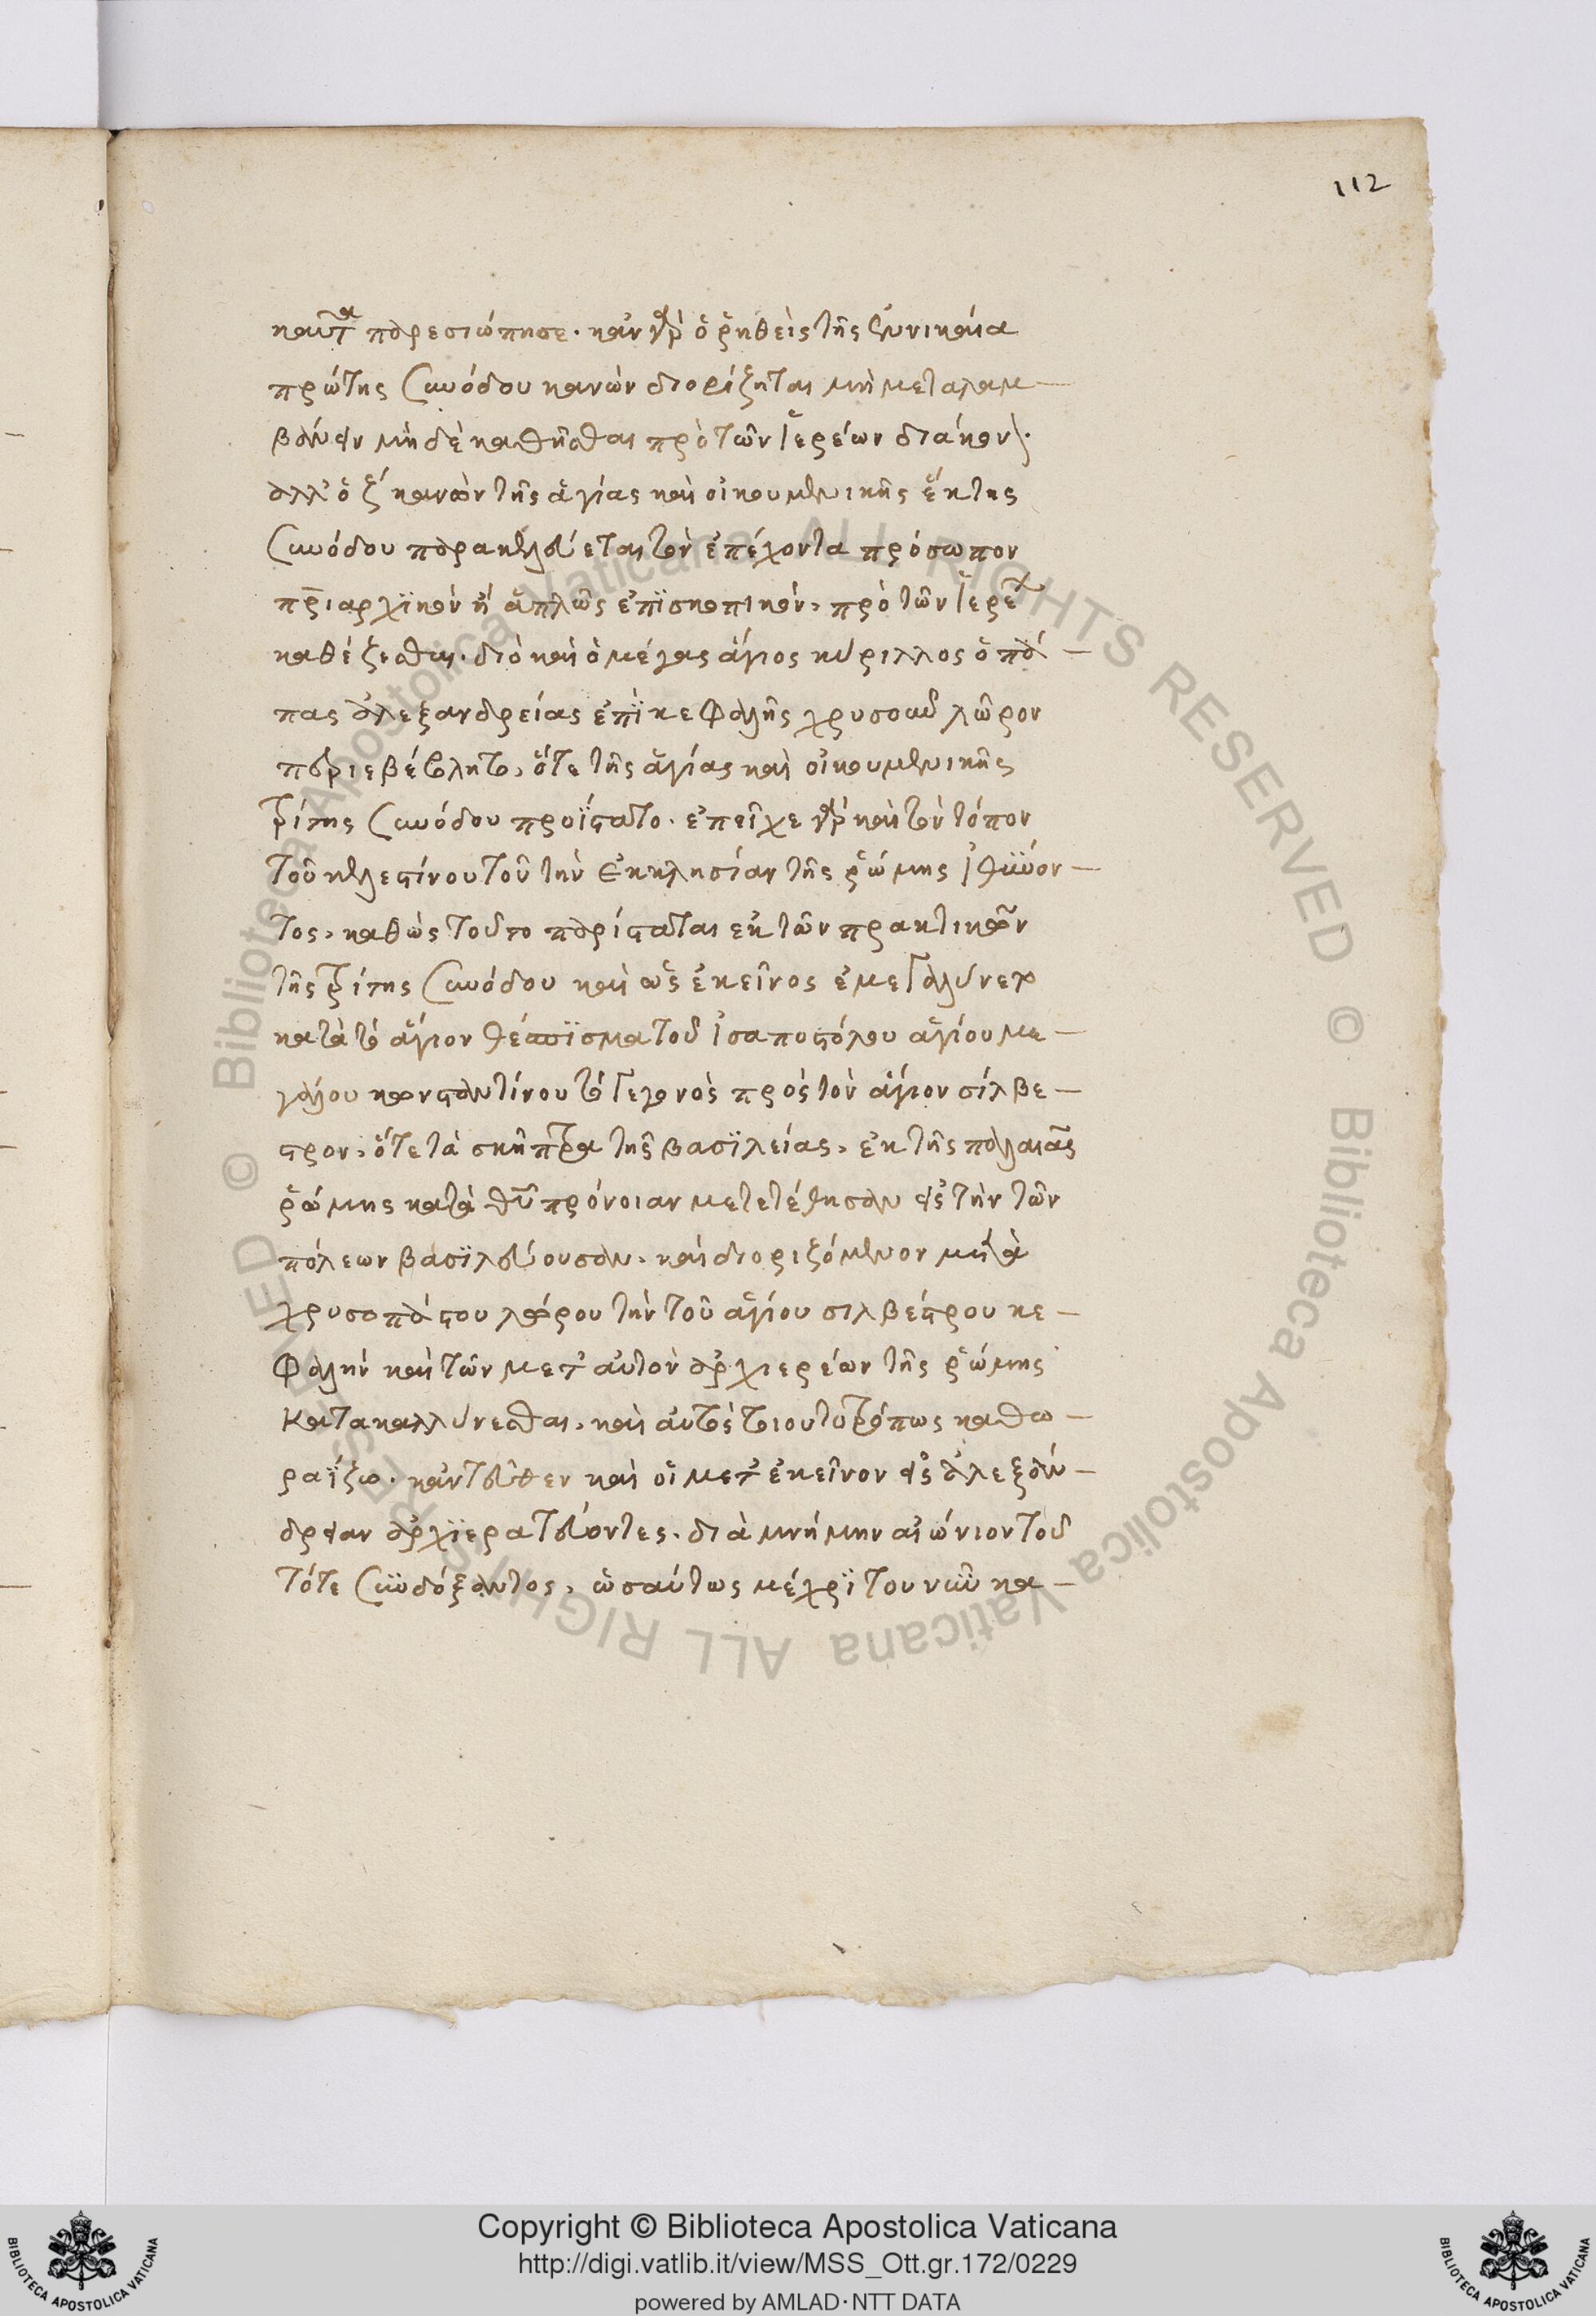 112
καὐτὰ παρεσιώπησε. κἂν γὰρ ὁ ῥηθεὶς τῆς ἐν νικαία
πρώτης συνόδου κανὼν διορίζηται μὴ μεταλαμ–
βάνειν μὴ δὲ καθῆσθαι πρὸ τῶν ἱερέων διάκον.
ἀλλ' ὁ ζ´ κανὼν τῆς ἁγίας καὶ οἰκουμενικῆς ἕκτης
συνόδου παρακελεύεται τὸν ἐπέχοντα πρόσωπον
πριαρχϊκὸν ἢ ἁπλῶς ἐπϊσκοπικὸν, πρὸ τῶν ἱερέων
καθέζεσθαι. διὸ καὶ ὁ μέγας ἅγιος κύριλλος ὁ πά–
πας ἀλεξανδρείας ἐπῒ κεφαλῆς χρυσοῦν λῶρον
περιεβέβλητο, ὅτε τῆς ἁγίας καὶ οἰκουμενικῆς
τρίτης συνόδου προΐστατο. ἐπεῖχε γὰρ καὶ τὸν τόπον
τοῦ κελεστίνου τοῦ τὴν ἐκκλησίαν τῆς ῥώμης ἰθύνον–
τος, καθὼς τοῦτο παρίσταται ἐκ τῶν πρακτικῶν
τῆς τρίτης συνόδου καὶ ὡς ἐκεῖνος ἐμεγαλύνετο
κατὰ τὸ ἅγιον θέσπϊσμα τοῦ ἰσαποστόλου ἁγίου με–
γάλου κωνσταντίνου τὸ γεγονὸς πρὸς τὸν ἅγιον σίλβε–
στρον, ὅτε τὰ σκῆπτρα τῆς βασϊλείας, ἐκ τῆς παλαιᾶς
ῥώμης κατὰ θῦ πρόνοιαν μετετέθησαν εἰς τὴν τῶν
πόλεων βασϊλεύουσαν. καὶ διοριζόμενον μετὰ
χρυσοπάστου λώρου τὴν τοῦ ἁγίου σιλβέστρου κε–
φαλὴν καὶ τῶν μετ' αὐτὸν ἀρχιερέων τῆς ῥώμης
κατακαλλύνεσθαι, καὶ αὐτὸς τοιουτοτρόπως καθω–
ραΐζω. κἀντεῦθεν καὶ οἱ μετ' ἐκεῖνον εἰς ἀλεξάν–
δρειαν ἀρχϊερατεύοντες. διὰ μνήμην αἰώνιον τοῦ
τότε συνδόξαντος, ὡσαύτως μέχρϊ τοῦ νῦν κα–
Copyright © Biblioteca Apostolica Vaticana
http://digi.vatlib.it/view/MSS_Ott.gr.172/0229
powered by AMLAD·NTT DATA